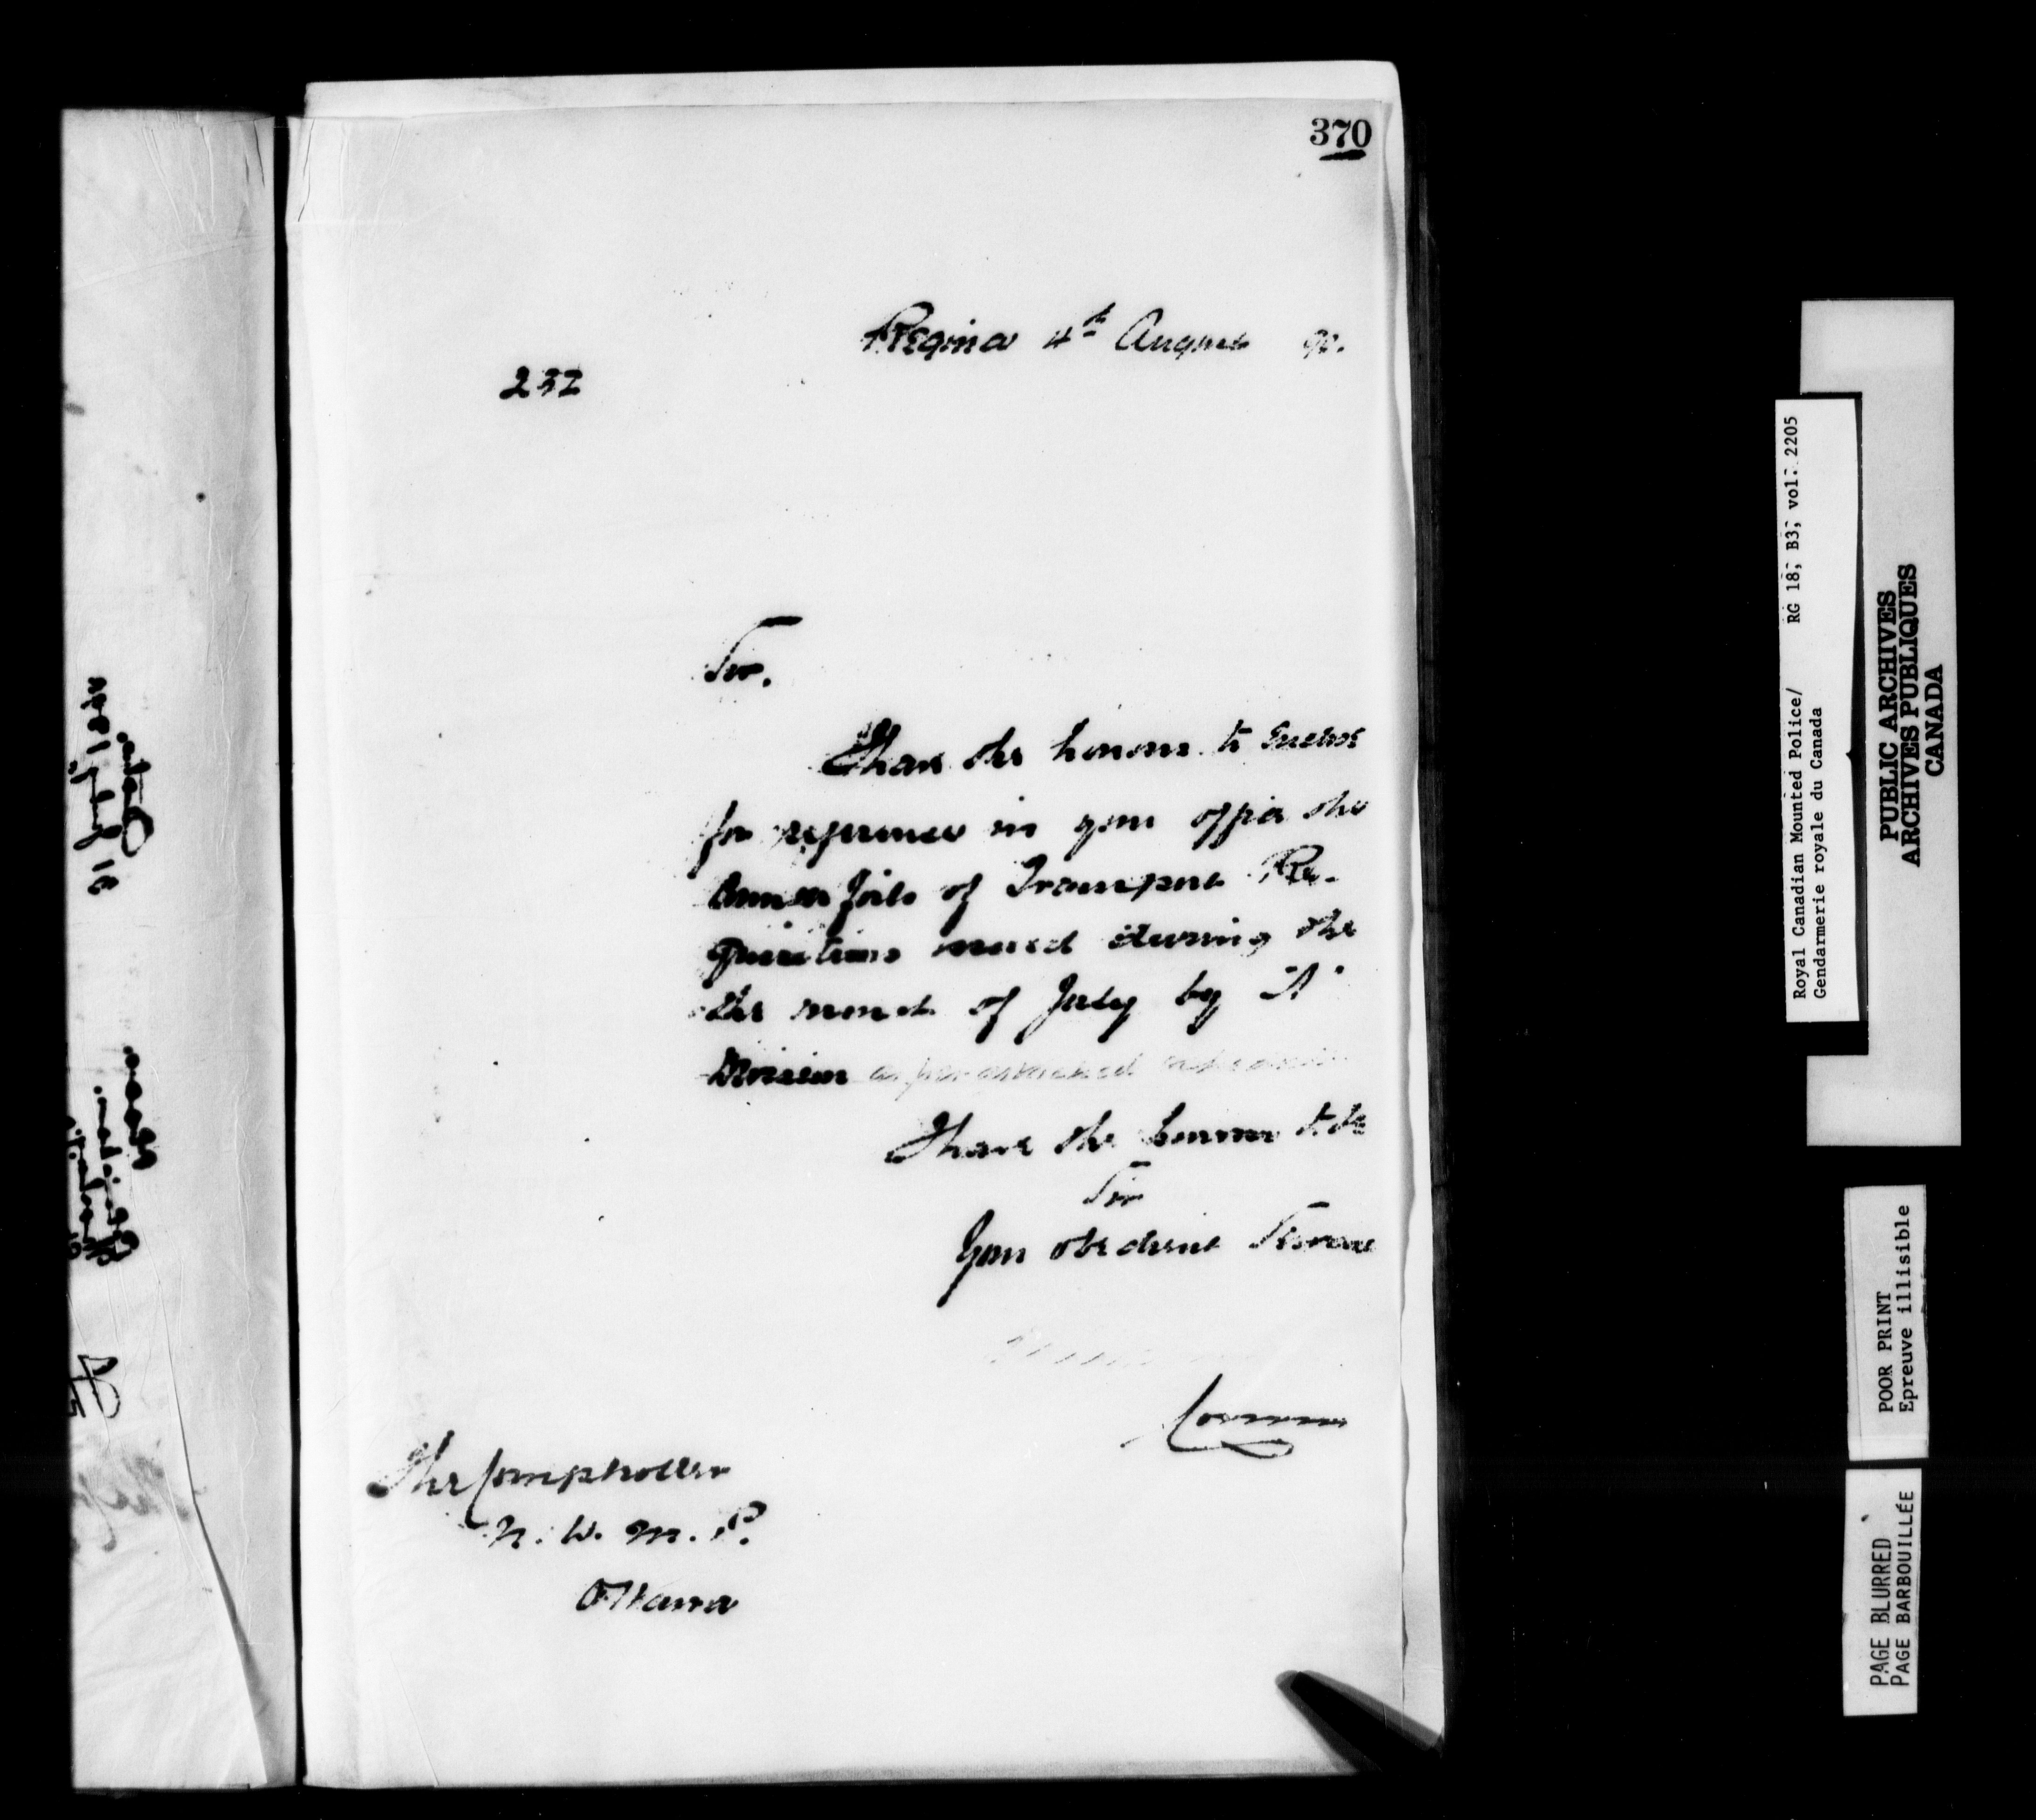 370
Regina 4th August 90.
232
Sir,
I have the honour to enclose
for reference in your office the
Counterfoils of Transport Re-
quisitions issued during the
the month of July by "A"
Division as per attached
I have the honour to be
Sir
Your obedient Servant
Commr
The Comptroller
N. W. M. P.
Ottawa
Royal Canadian Mounted Police/ RG 18, B3, vol. 2205
Gendarmerie royale du Canada
PUBLIC ARCHIVES
ARCHIVES PUBLIQUES
CANADA
POOR PRINT
Epreuve illisible
PAGE BLURRED
PAGE BARBOUILLÉE